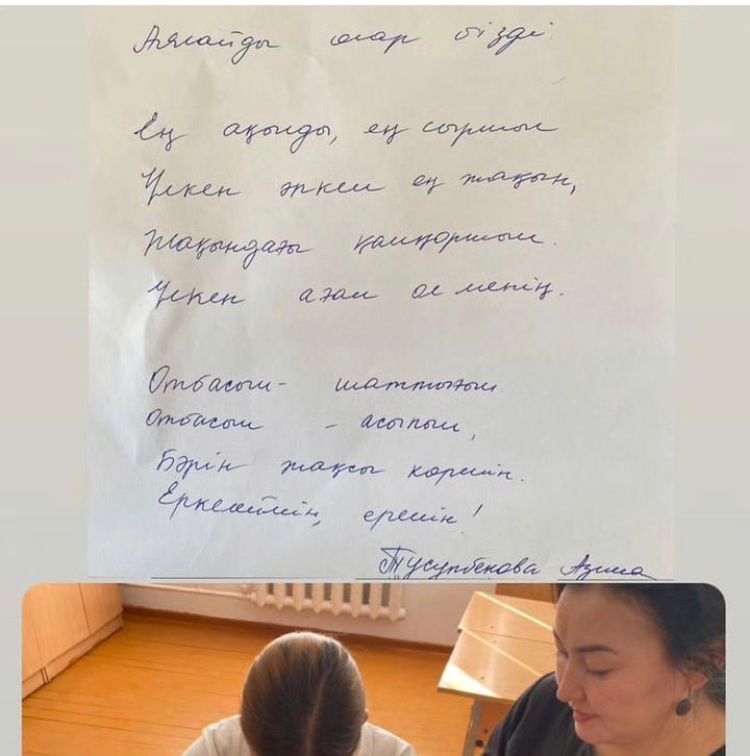 Аялайды олар бізді.
Ең ақылды, ең сырлым
Үлкен әпкем ең жақын,
Жақындағы қамқоршым.
Үлкен ағам ол менің.
Отбасым - шаттығым
Отбасым - асылым,
Бәрін жақсы көремін.
Еркелеймін, еремін!
Тусупбекова Азима